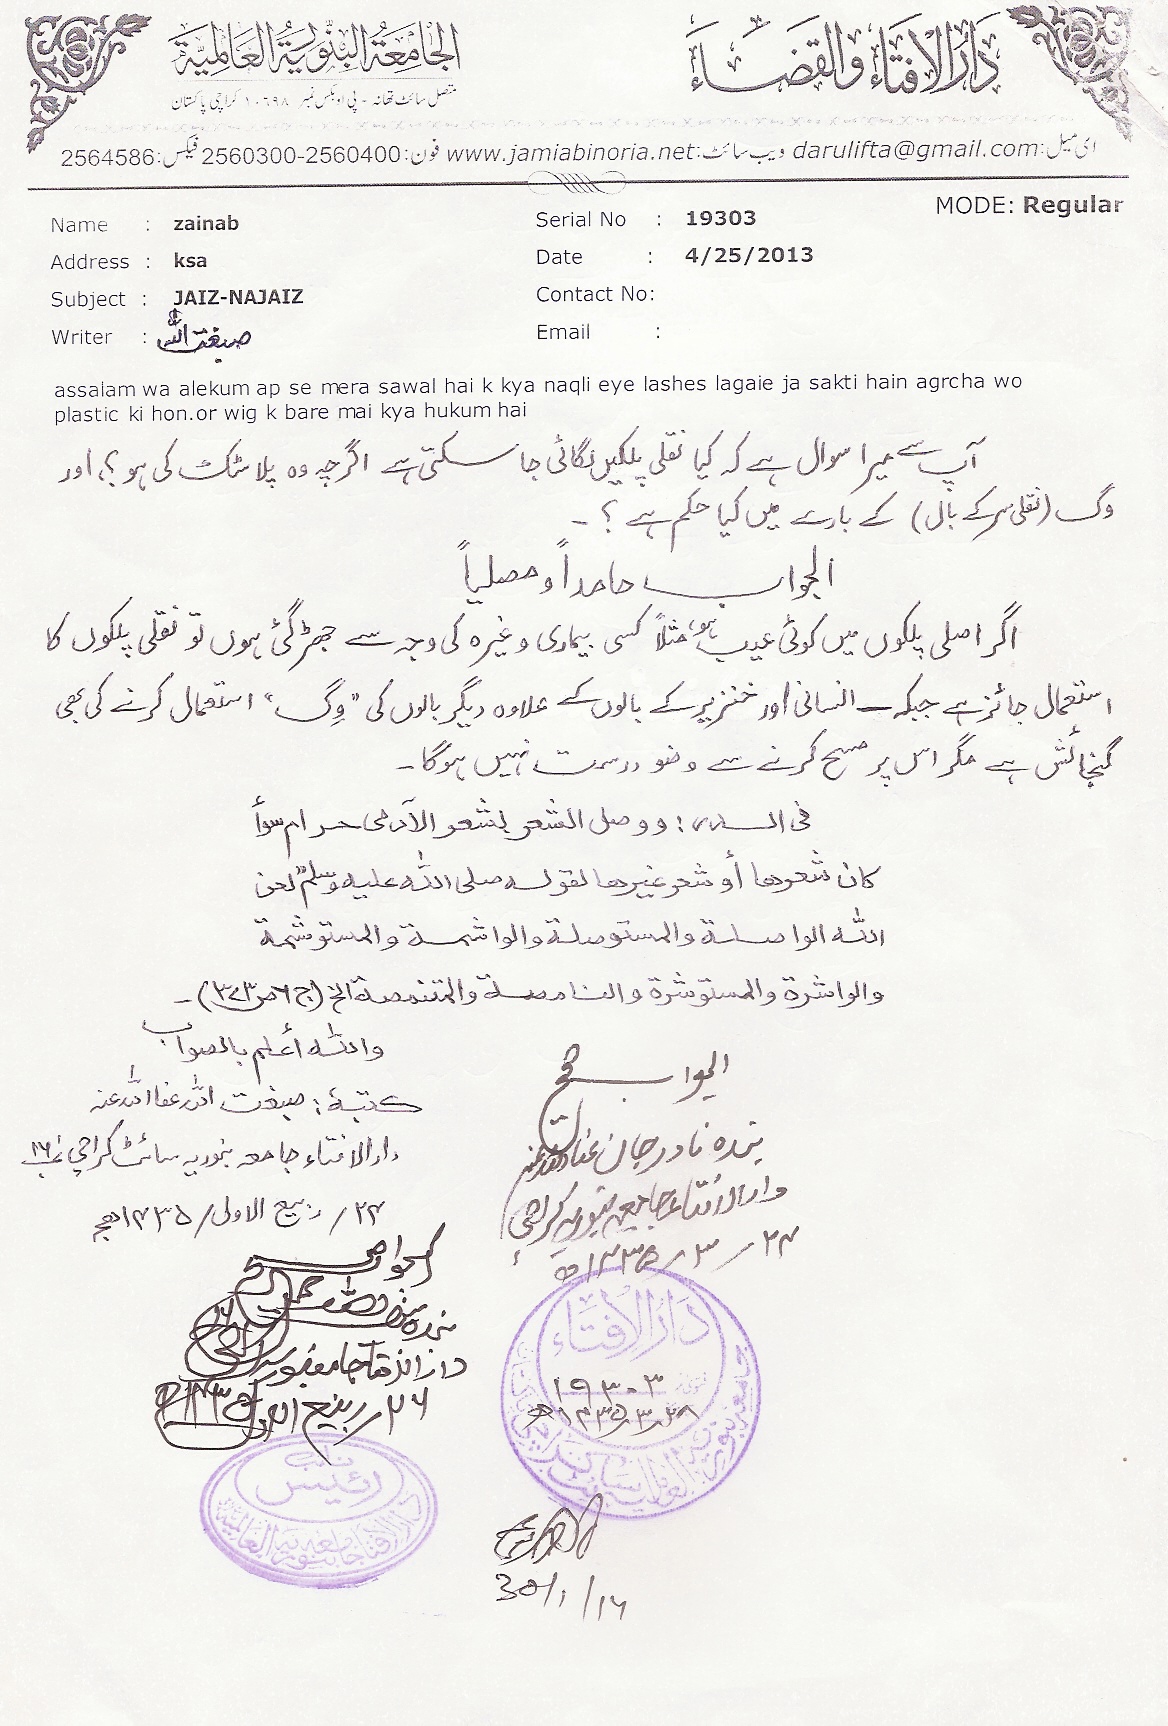 دَارُالافتَاء وَالقضَاء
الجَامعَۃُ البِنّوریۃُ العَالمیَّۃ
متصل سائٹ تھانہ - پی او بکس نمبر ۱۰۶۹۸ کراچی پاکستان
ای میل:darulifta@gmail.com ویب سائٹ:www.jamiabinoria.net فون:2560300-2560400 فیکس:2564586
MODE: Regular
Name : zainab
Serial No : 19303
Address : ksa
Date : 4/25/2013
Subject : JAIZ-NAJAIZ
Contact No:
Writer : صبغت اللہ
Email :
assalam wa alekum ap se mera sawal hai k kya naqli eye lashes lagaie ja sakti hain agrcha wo
plastic ki hon.or wig k bare mai kya hukum hai
آپ سے میرا سوال ہے کہ کیا نقلی پلکیں لگائی جا سکتی ہے اگرچہ وہ پلاسٹک کی ہو؟، اور
وگ (نقلی سر کے بال) کے بارے میں کیا حکم ہے؟۔
الجواب حامداً ومصلیاً
اگر اصلی پلکوں میں کوئی عیب ہو، مثلاً کسی بیماری وغیرہ کی وجہ سے جھڑ گئی ہوں تو نقلی پلکوں کا
استعمال جائز ہے جبکہ انسانی اور خنزیر کے بالوں کے علاوہ دیگر بالوں کی "وِگ" استعمال کرنے کی بھی
گنجائش ہے مگر اس پر مسح کرنے سے وضو درست نہیں ہوگا۔
فی الدر: ووصل الشعر بشعر الآدمی حرام سوأ
کان شعرھا أو شعر غیرھا لقولہ صلی اللہ علیہ وسلم "لعن
اللہ الواصلۃ والمستوصلۃ والواشمۃ والمستوشمۃ
والواشرۃ والمستوشرۃ والنامصۃ والمتنمصۃ الخ (ج٦ ص٣٧٣)۔
واللہ أعلم بالصواب
کتبہٗ: صبغت اللہ عفا اللہ عنہ
دار الافتاء جامعہ بنوریہ سائٹ کراچی نمبر ١٦
٢٤/ ربیع الاولی/ ١٤٣٥ھجر
الجواب صحیح
بندہ نادر جان عفا اللہ عنہ
دار الافتاء جامعہ بنوریہ کراچی
٢٤/٣/١٤٣٥ھ
الجواب صحیح
بندہ
دار الافتاء جامعہ بنوریہ
٢٦/ ربیع الاول
دَارُالافتَاء
١٩٣٠٣
٢٨/٣/١٤٣٥ھ
نائب
رئیس
دار الافتا جامعہ بنوریہ العالمیۃ